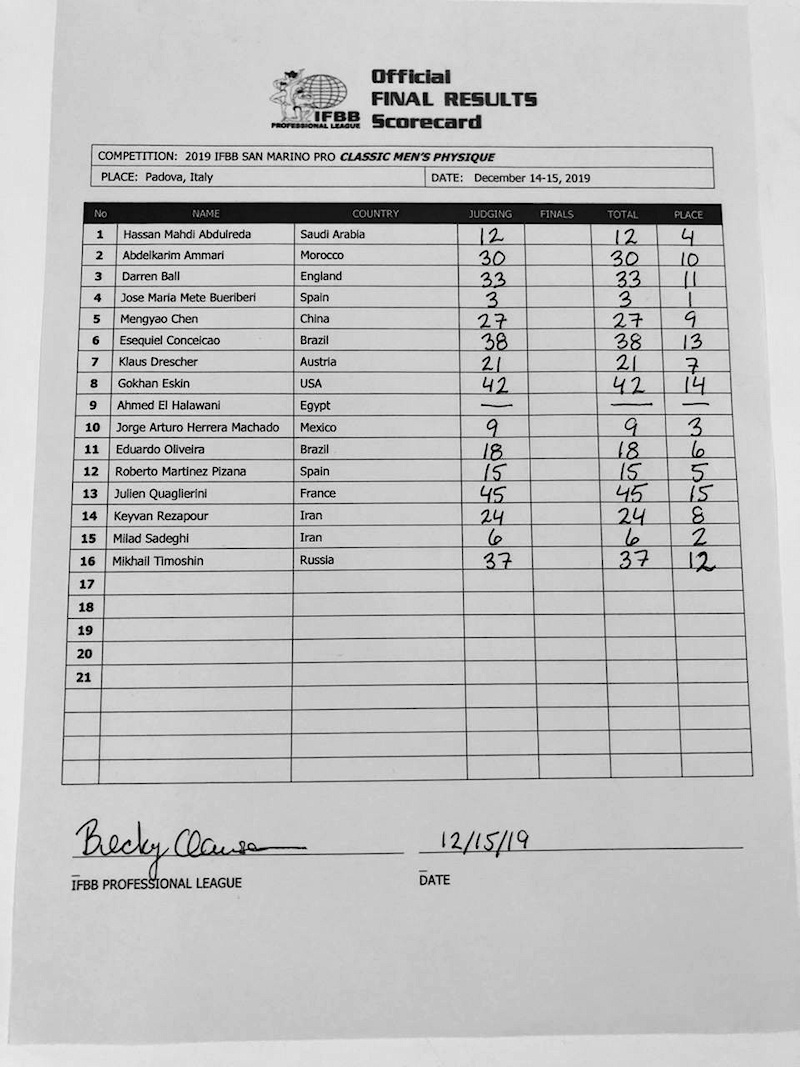 Official
FINAL RESULTS
Scorecard
IFBB
PROFESSIONAL LEAGUE
COMPETITION: 2019 IFBB SAN MARINO PRO CLASSIC MEN'S PHYSIQUE
PLACE: Padova, Italy DATE: December 14-15, 2019
No NAME COUNTRY JUDGING FINALS TOTAL PLACE
1 Hassan Mahdi Abdulreda Saudi Arabia 12 12 4
2 Abdelkarim Ammari Morocco 30 30 10
3 Darren Ball England 33 33 11
4 Jose Maria Mete Bueriberi Spain 3 3 1
5 Mengyao Chen China 27 27 9
6 Esequiel Conceicao Brazil 38 38 13
7 Klaus Drescher Austria 21 21 7
8 Gokhan Eskin USA 42 42 14
9 Ahmed El Halawani Egypt — — —
10 Jorge Arturo Herrera Machado Mexico 9 9 3
11 Eduardo Oliveira Brazil 18 18 6
12 Roberto Martinez Pizana Spain 15 15 5
13 Julien Quaglierini France 45 45 15
14 Keyvan Rezapour Iran 24 24 8
15 Milad Sadeghi Iran 6 6 2
16 Mikhail Timoshin Russia 37 37 12
17
18
19
20
21
Becky Clawson 12/15/19
IFBB PROFESSIONAL LEAGUE DATE